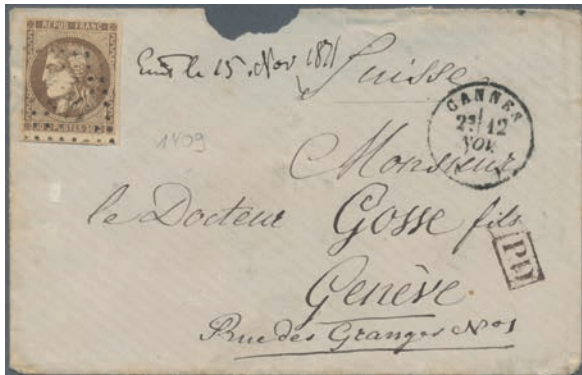 REPUB. FRANC.
POSTES
le 15 Nov 1871
Suisse
CANNES
12
NOV.
1409
Monsieur
le Docteur Gosse fils
PD
Genève
Rue des Granges No 1